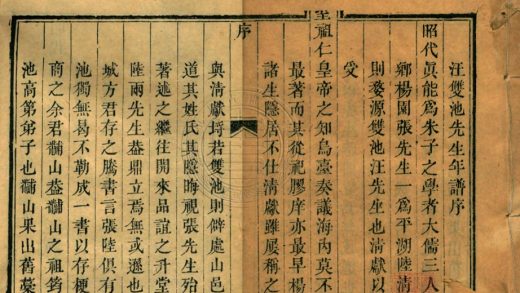 汪雙池先生年譜序
昭代眞能爲朱子之學者大儒三人
鄉楊園張先生一爲平湖陸清
則婺源雙池汪先生也清獻以
受
聖祖仁皇帝之知烏臺奏議海內莫不
最著而其從祀膠庠亦最早楊
諸生隱居不仕清獻雖屢稱之
序
與清獻埒若雙池則僻處山邑
道其姓氏其隱晦視張先生殆
著述之繼往開來品誼之升堂
陸兩先生葢鼎立焉無或遜也
城方君存之騰書言張陸俱有
池獨無曷不勒成一書以存梗
商之余君黼山葢黼山之祖筠
池高第弟子也黼山果出舊藁